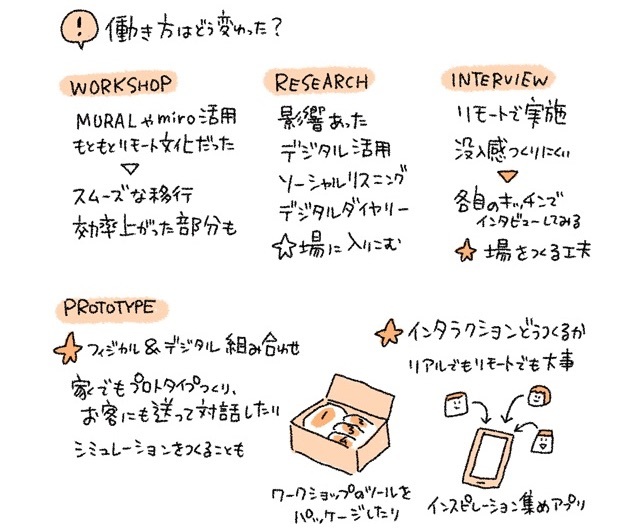 ! 働き方はどう変わった?
WORKSHOP
MURALやmiro活用
もともとリモート文化だった
スムーズな移行
効率上がった部分も
RESEARCH
影響あった
デジタル活用
ソーシャルリスニング
デジタルダイヤリー
☆場に入りこむ
INTERVIEW
リモートで実施
没入感つくりにくい
各自のキッチンで
インタビューしてみる
★場をつくる工夫
PROTOTYPE
★フィジカル&デジタル組み合わせ
家でもプロトタイプつくり、
お客にも送って対話したり
シミュレーションをつくることも
1
2
3
4
ワークショップのツールを
パッケージしたり
★インタラクションどうつくるか
リアルでもリモートでも大事
インスピレーション集めアプリ